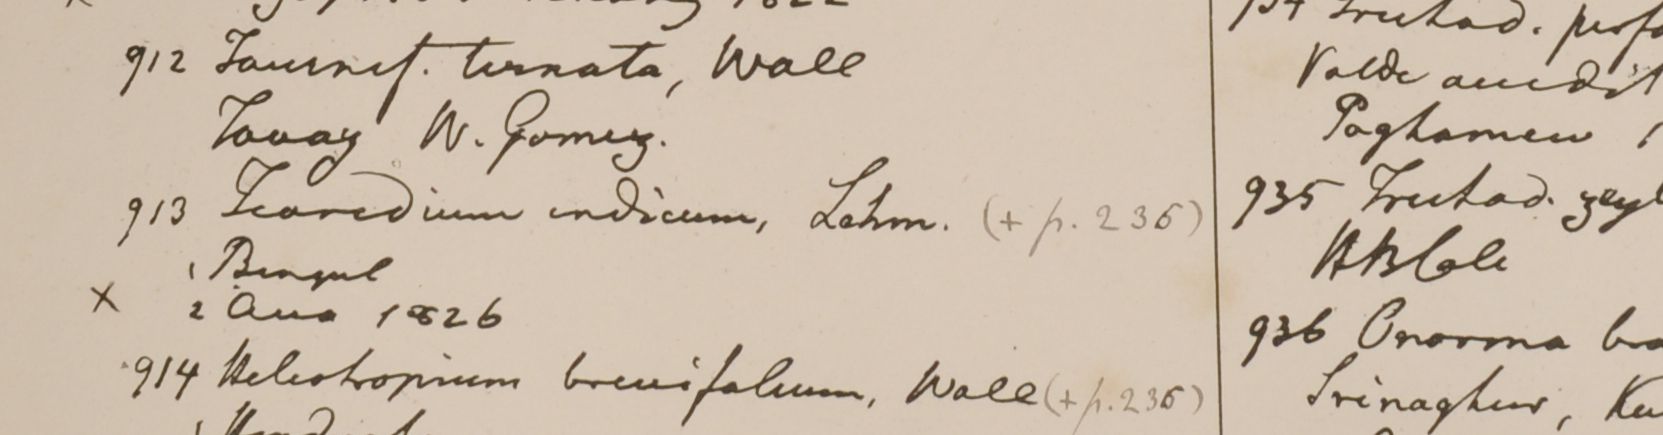 1822
912 Tournef. ternata, Wall
Tavay W. Gomez.
913 Tiaredium indicum, Lehm. (+ p. 236)
1 Bengal
x 2 Ava 1826
914 Heliotropium brevifolium, Wall (+ p. 236)
934 Trichod.
Valde
935 Trichod. zeyl
936 Onosma
Srinaghur,